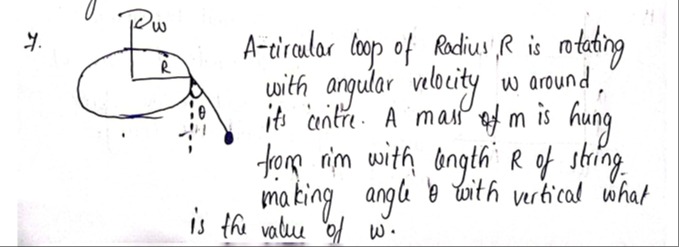 7.
ω
R
θ
A-circular loop of Radius R is rotating
with angular velocity w around
its centre. A mass of m is hung
from rim with length R of string
making angle θ with vertical what
is the value of w.